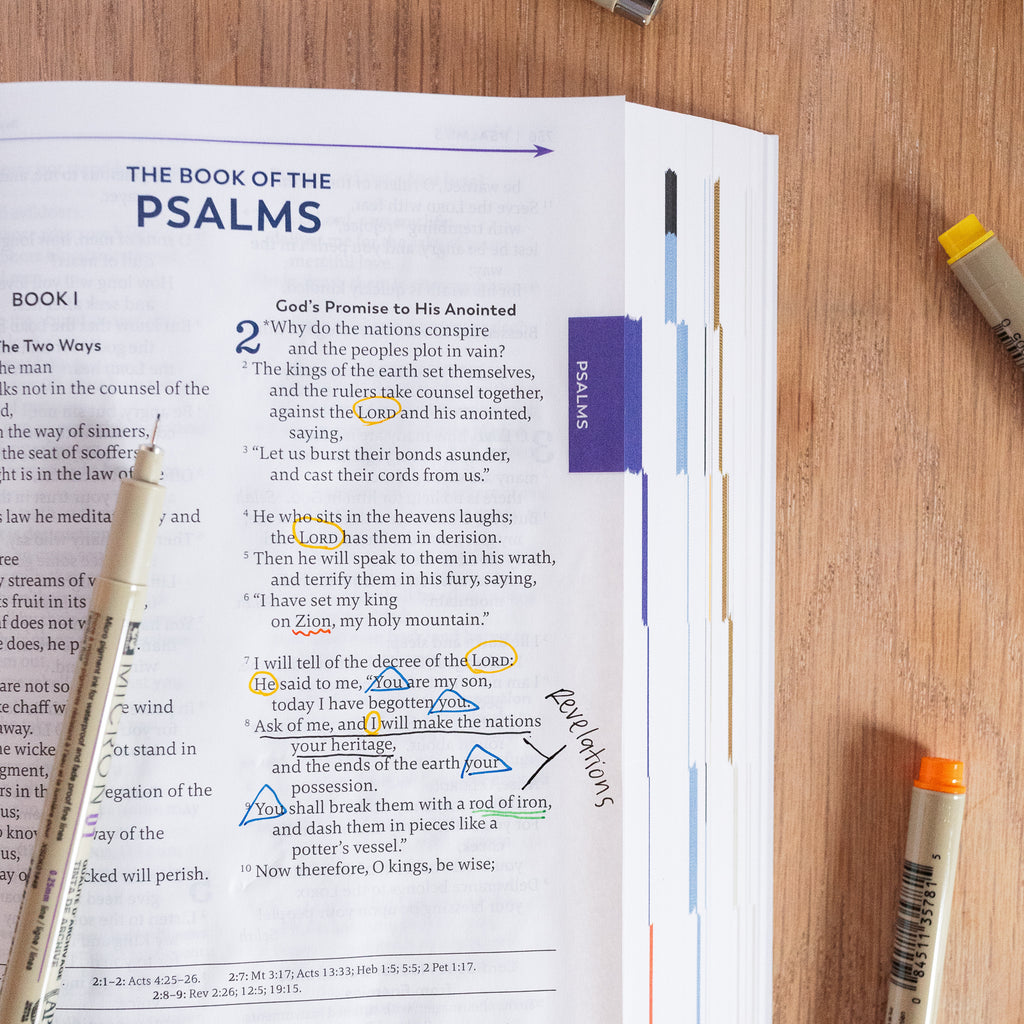 THE BOOK OF THE
PSALMS
BOOK I
The Two Ways
he man
lks not in the counsel of the
d,
n the way of sinners,
the seat of scoffers
ght is in the law of
s law he medita y and
ree
y streams of
ts fruit in its ,
af does not w
e does, he p
are not so
ke chaff w e wind
away.
he wicke ot stand in
dgment,
ers in th egation of the
us;
o know way of the
us,
ay o cked will perish.
God's Promise to His Anointed
2 *Why do the nations conspire
and the peoples plot in vain?
2 The kings of the earth set themselves,
and the rulers take counsel together,
against the LORD and his anointed,
saying,
3 “Let us burst their bonds asunder,
and cast their cords from us.”
4 He who sits in the heavens laughs;
the LORD has them in derision.
5 Then he will speak to them in his wrath,
and terrify them in his fury, saying,
6 “I have set my king
on Zion, my holy mountain.”
7 I will tell of the decree of the LORD:
He said to me, “You are my son,
today I have begotten you.
8 Ask of me, and I will make the nations
your heritage,
and the ends of the earth your
possession.
9 You shall break them with a rod of iron,
and dash them in pieces like a
potter's vessel.”
10 Now therefore, O kings, be wise;
Revelations
PSALMS
2:1–2: Acts 4:25–26. 2:7: Mt 3:17; Acts 13:33; Heb 1:5; 5:5; 2 Pet 1:17.
2:8–9: Rev 2:26; 12:5; 19:15.
MICRON 01
Micro pigment ink for waterproof and fade proof fine lines
0.25mm line/ligne/linea
0 84511 35781 5